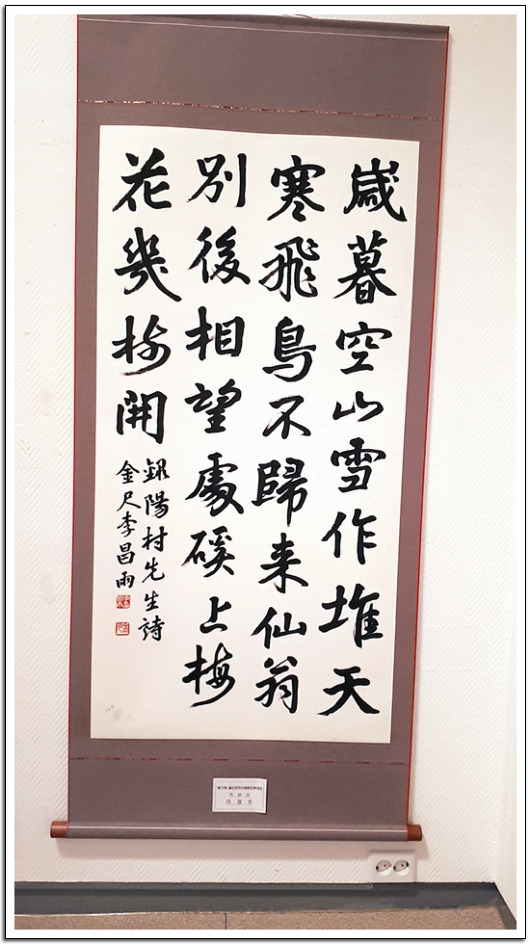 嵗暮空山雪作堆天
寒飛鳥不歸来仙翁
別後相望處磎上梅
花幾樹開
錄陽村先生詩
金尺李昌雨